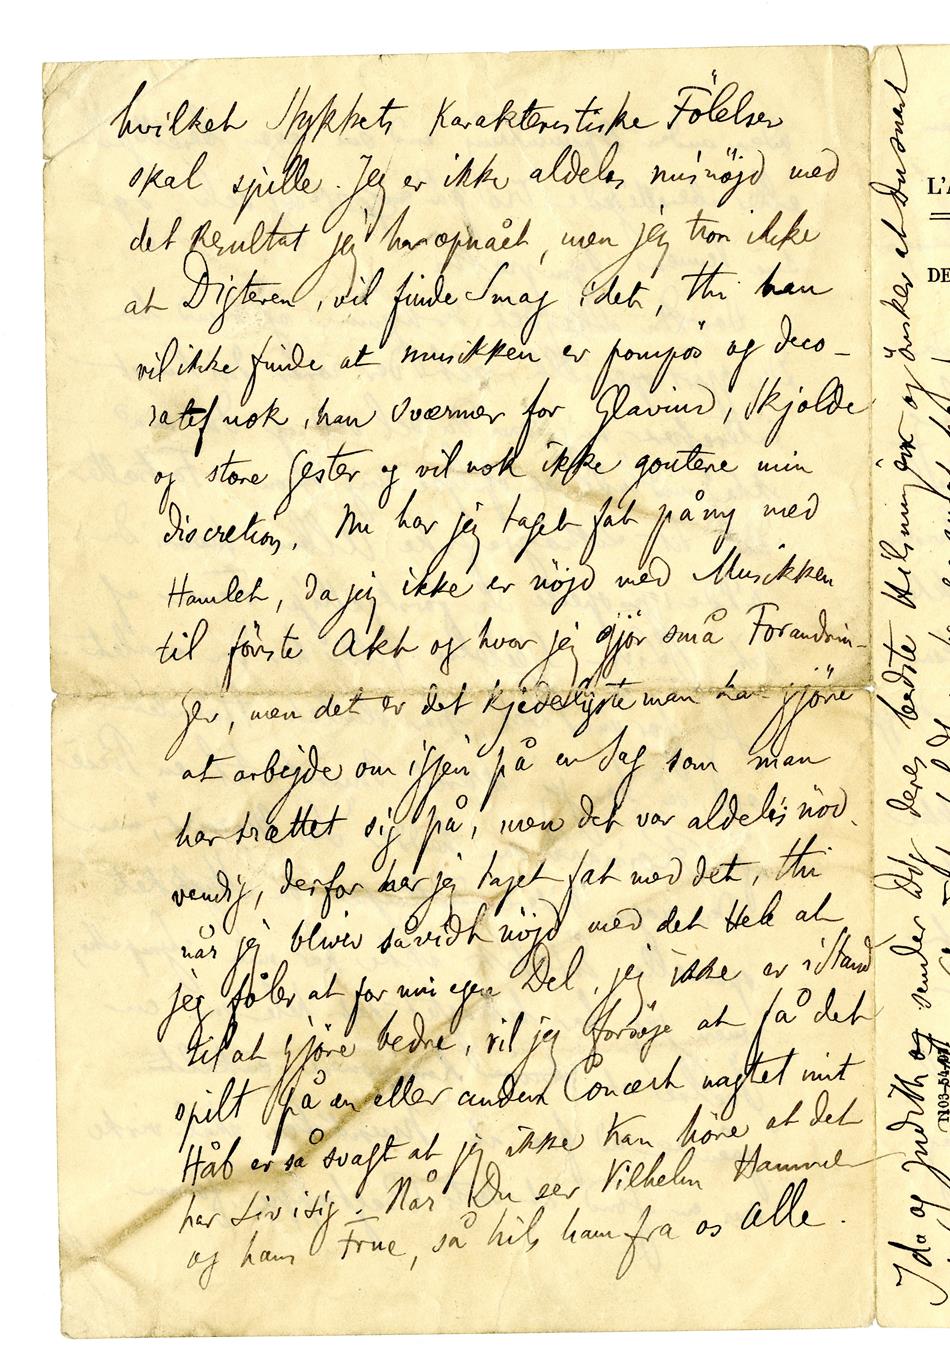 hvilket Stykkets Karakteristiske Fölelser
skal spille. Jeg er ikke aldeles misnöjd med
det Resultat jeg har opnået, men jeg tror ikke
at Digteren, vil finde Smag i det, thi han
vil ikke finde at musikken er pompös og deco-
ratif nok, han sværmer for Glavind, Skjolde
og store Gester og vil nok ikke goutere min
discretion. Nu har jeg taget fat på ny med
Hamlet, da jeg ikke er nöjd med Musikken
til förste Akt og hvor jeg gjör små Forandrin-
ger, men det er det kjedeligste man kan gjöre
at arbejde om igjen på en Sag som man
har trættet sig på, men det var aldeles nöd-
vendig, derfor har jeg taget fat med det, thi
når jeg bliver såvidt nöjd med det Hele at
jeg föler at for min egen Del, jeg ikke er i Stand
til at gjöre bedre, vil jeg forsöge at få det
spilt på en eller anden Concert uagtet mit
Håb er så svagt at jeg ikke kan höre at det
har Liv i sig. Når Du ser Vilhelm Hammer
og hans Frue, så hils ham fra os alle.
Ida og Judith og sender Dig deres bedste Hilsninger og önsker at Du snart
L'A
DE